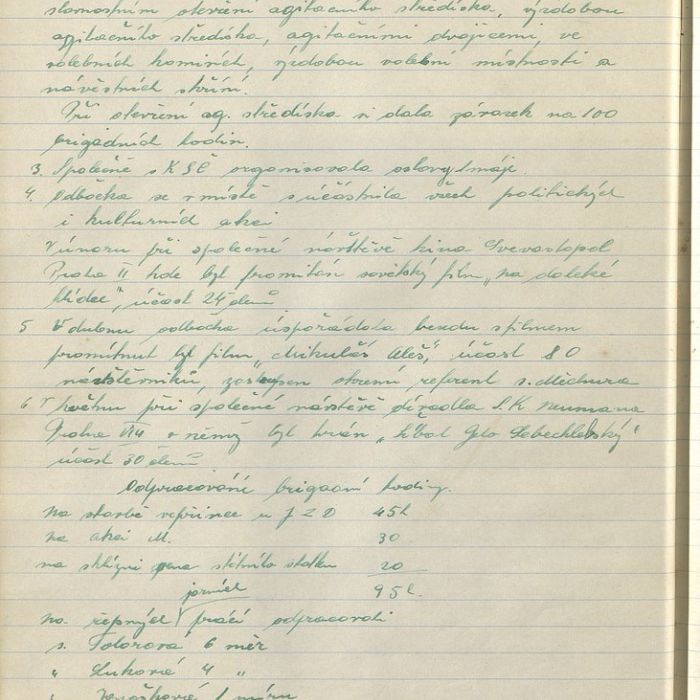 slavnostním otevření agitačního střediska, výzdobou
agitačního střediska, agitačními dvojicemi, ve
volebních komisích, výzdobou volební místnosti a
návěstních skříní.
Při otevření ag. střediska si dala závazek na 100
brigádních hodin.
3. Společně s KSČ organisovala oslavy 1 máje.
4. Odbočka se v místě súčástnila všech politických
i kulturních akcí
V únoru při společné návštěvě kina Sevastopol
Praha II kde byl promítán sovětský film „na daleké
účast 24 členů
5 V dubnu odbočka úspořádala besedu s filmem
promítnut byl film „Mikuláš Aleš", účast 80
návštěvníků, zastoupen okresní referent s. Michura
6 V květnu při společné návštěvě divadla S. K Neumana
Praha VIII v němž byl hrán
účast 30 členů
Odpracováné brigadní hodiny.
na stavbě vepřince u JZD 45h
na akci M. 30
na sklizni sena státního statku 20
95h.
jarních
na řepných prácí odpracovali
s. Fotorova 6 měr
" 4 "
1 míru